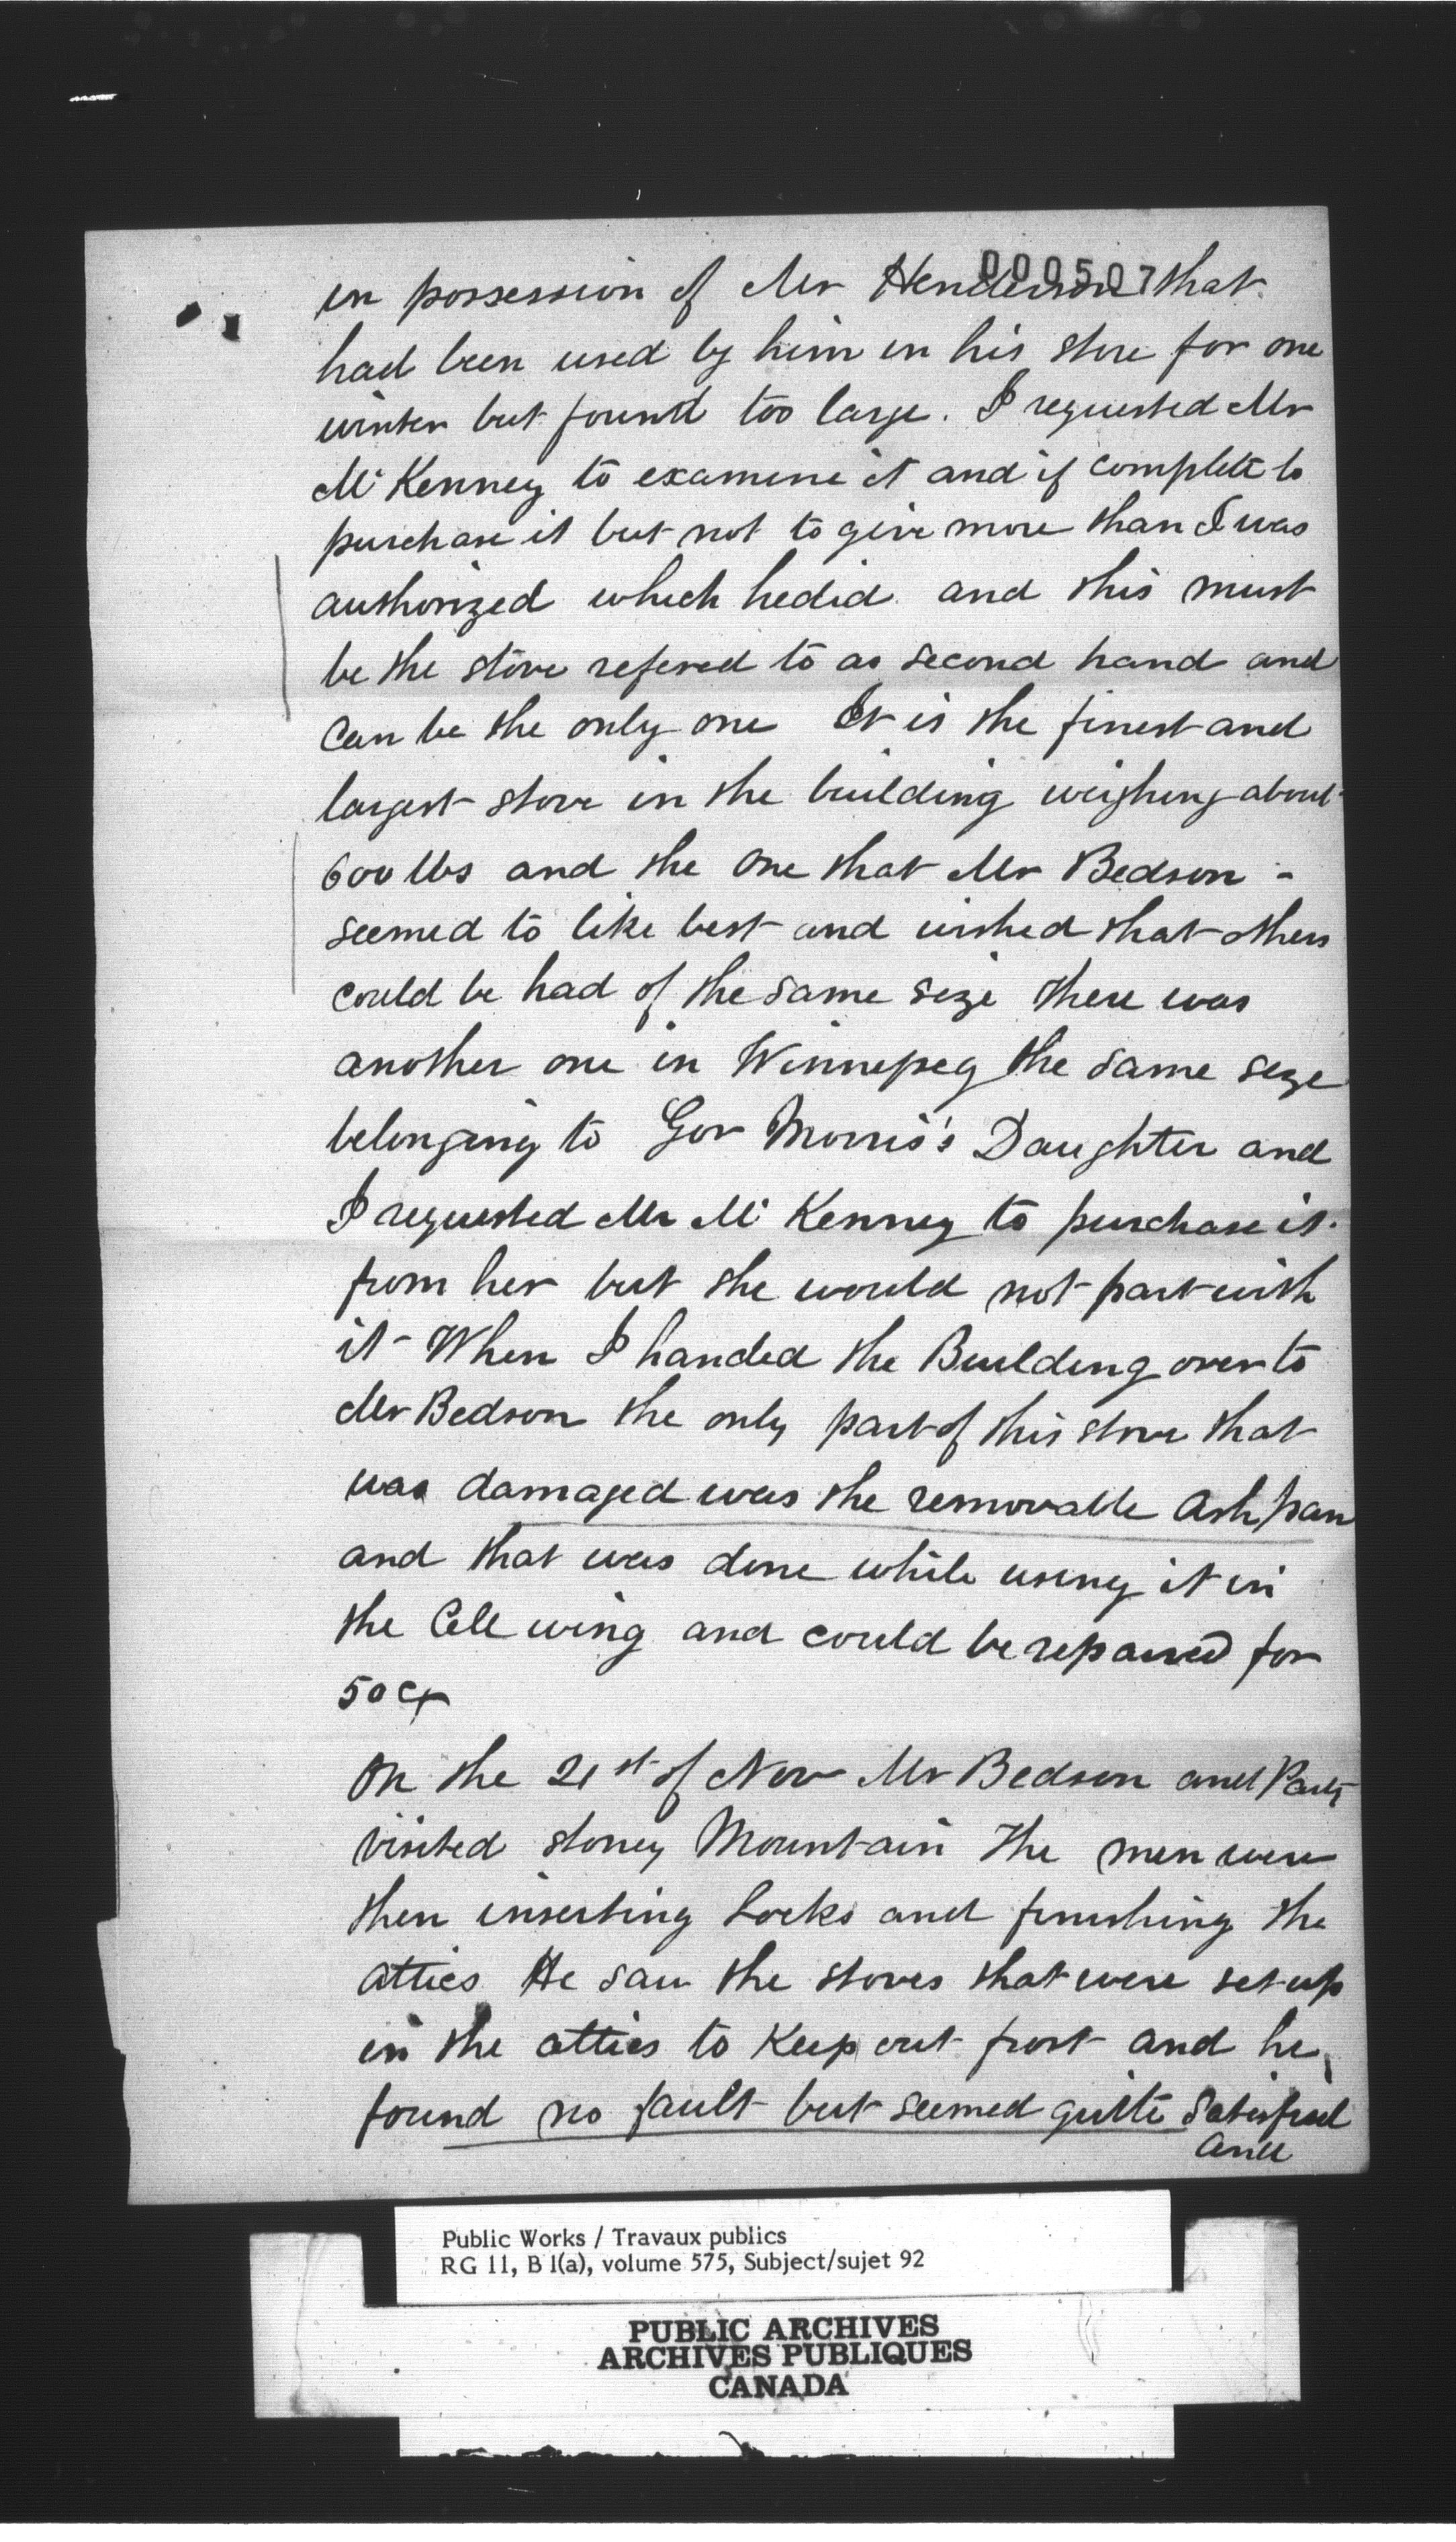 000507
in possession of Mr Henderson that
had been used by him in his store for one
winter but found too large. I requested Mr
McKenney to examine it and if complete to
purchase it but not to give more than I was
authorized which he did and this must
be the stove refered to as second hand and
can be the only one It is the finest and
largest stove in the building weighing about
600 lbs and the one that Mr Bedson -
seemed to like best and wished that others
could be had of the same size There was
another one in Winnepeg the same size
belonging to Gov Morris's Daughter and
I requested Mr McKenney to purchase it
from her but she would not part with
it - When I handed the Building over to
Mr Bedson the only part of this stove that
was damaged was the removable Ash pan
and that was done while using it in
the Cell wing and could be repaired for
50 cts
On the 21st of Nov Mr Bedson and Party
visited Stoney Mountain The men were
then inserting Locks and finishing the
attics He saw the stoves that were set up
in the attics to Keep out frost and he
found no fault but seemed quite satisfied
and
Public Works / Travaux publics
RG 11, B 1(a), volume 575, Subject/sujet 92
PUBLIC ARCHIVES
ARCHIVES PUBLIQUES
CANADA